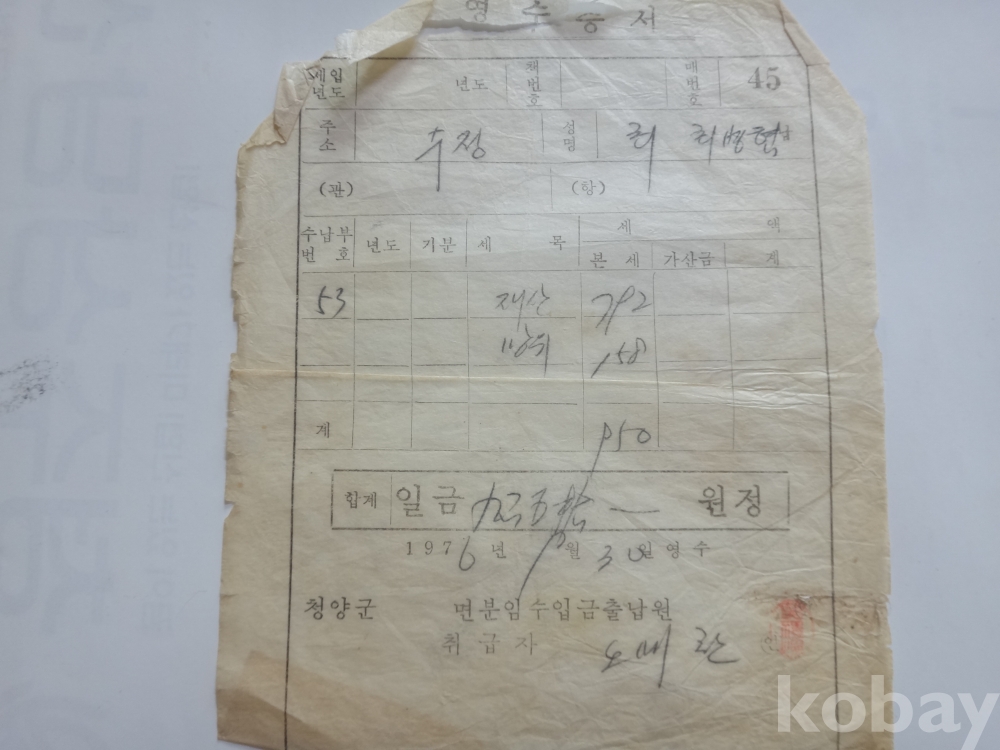 영 수 증 서
세입년도 년도 책번호 매번호 45
주소 수정 성명 최 최병혁
(관) (항)
수납부번호 년도 기분 세 목 세 액
본 세 가산금 계
53 재산 792
방위 158
계 950
합계 일금 九百五拾 — 원정
1976년 9월 30일 영수
청양군 면분임수입금출납원
취급자
인
kobay